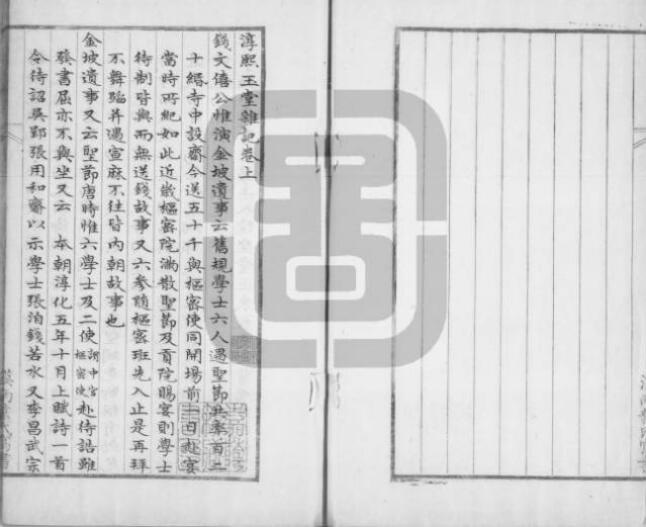 淳熙玉堂雜記卷上
錢文僖公惟演金坡遺事云舊規學士六人遇聖節共率百二
十緡寺中設齋今送五十千與樞密使同開場前一日赴宴
當時所紀如此近歲樞密院滿散聖節及貢院賜宴則學士
待制皆與而無送錢故事又六參隨樞密班先入止是再拜
不舞蹈并遇宣麻不往皆內朝故事也
金坡遺事又云聖節唐時惟六學士及二使謂中官樞密使赴待誥雖
發書屈亦不與坐又云 本朝淳化五年十月上賦詩一首
令待詔吳郢張用和齋以示學士張洎錢若水又李昌武宗